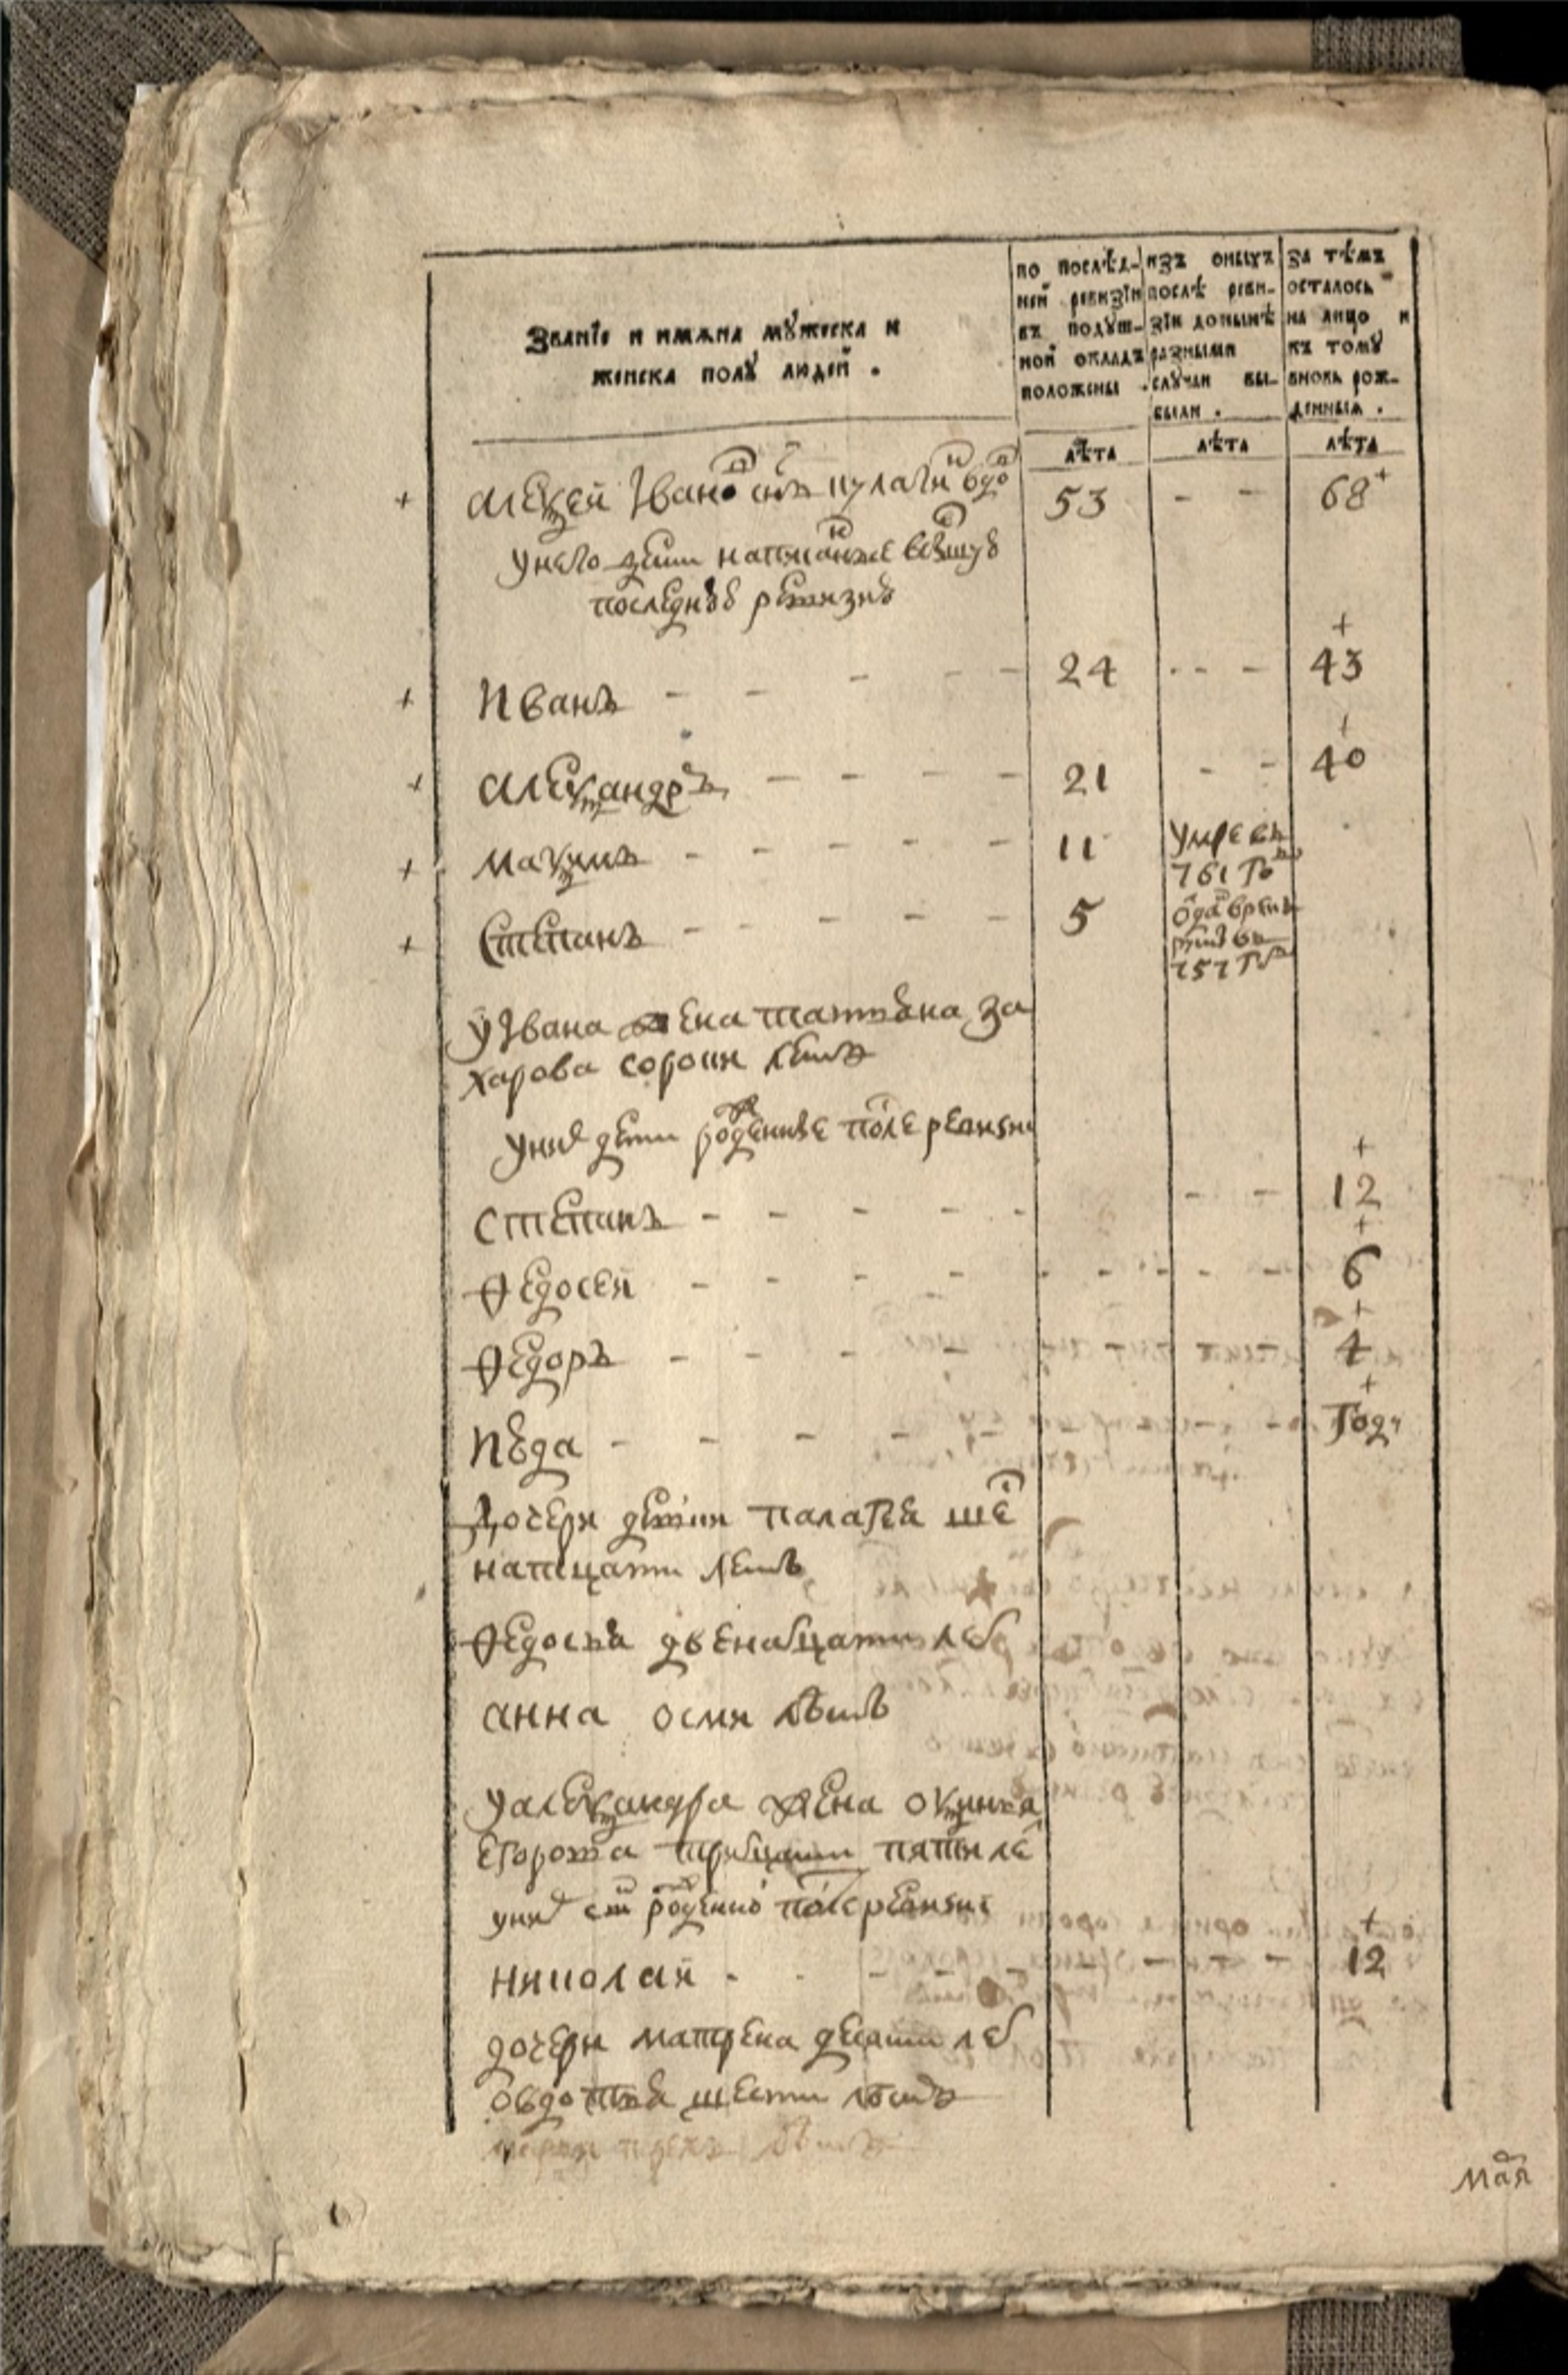 Званїе и имѧна мꙋжеска и
женска полꙋ людей .
по послѣд-
ней ревизїи
въ подꙋш-
ной окладъ
положены .
изъ оныхъ
послѣ реви-
зїи донынѣ
разными
слꙋчаи вы-
были .
за тѣмъ
осталось
на лицо и
къ томꙋ
вновь рож-
денныѧ .
лѣта лѣта лѣта
+ алеѯей Iвановъ снъ кулагинъ вдовъ 53 - - 68 +
унего дети написанные
последнѣй ревизиѣ
+ Иванъ - - - - - 24 - - - 43 +
+ алеѯандръ - - - - 21 - - 40 +
+ маѯимъ - - - - - 11 умре въ
761 го
+ Степанъ - - - - - 5 ѡда врекъ
руты въ
757 го
у Iвана жена татьяна за
харова сороки летъ
уних дети рожденные после ревизи
степанъ - - - - - - - 12 +
Ѳедосей - - - - - - - - - 6 +
Ѳедоръ - - - 4 +
- - - - - - - году +
дочери девки палагея ше
натцати летъ
Ѳедосья двенатцати лет
анна осми лѣтъ
уалеѯандра жена оѯинья
егорова тритцати пяти ле
уних сын рожденной после ревизи
николай - - - - - - - 12 +
дочери матрена десяти лет
овдотья шести лѣтъ
мая